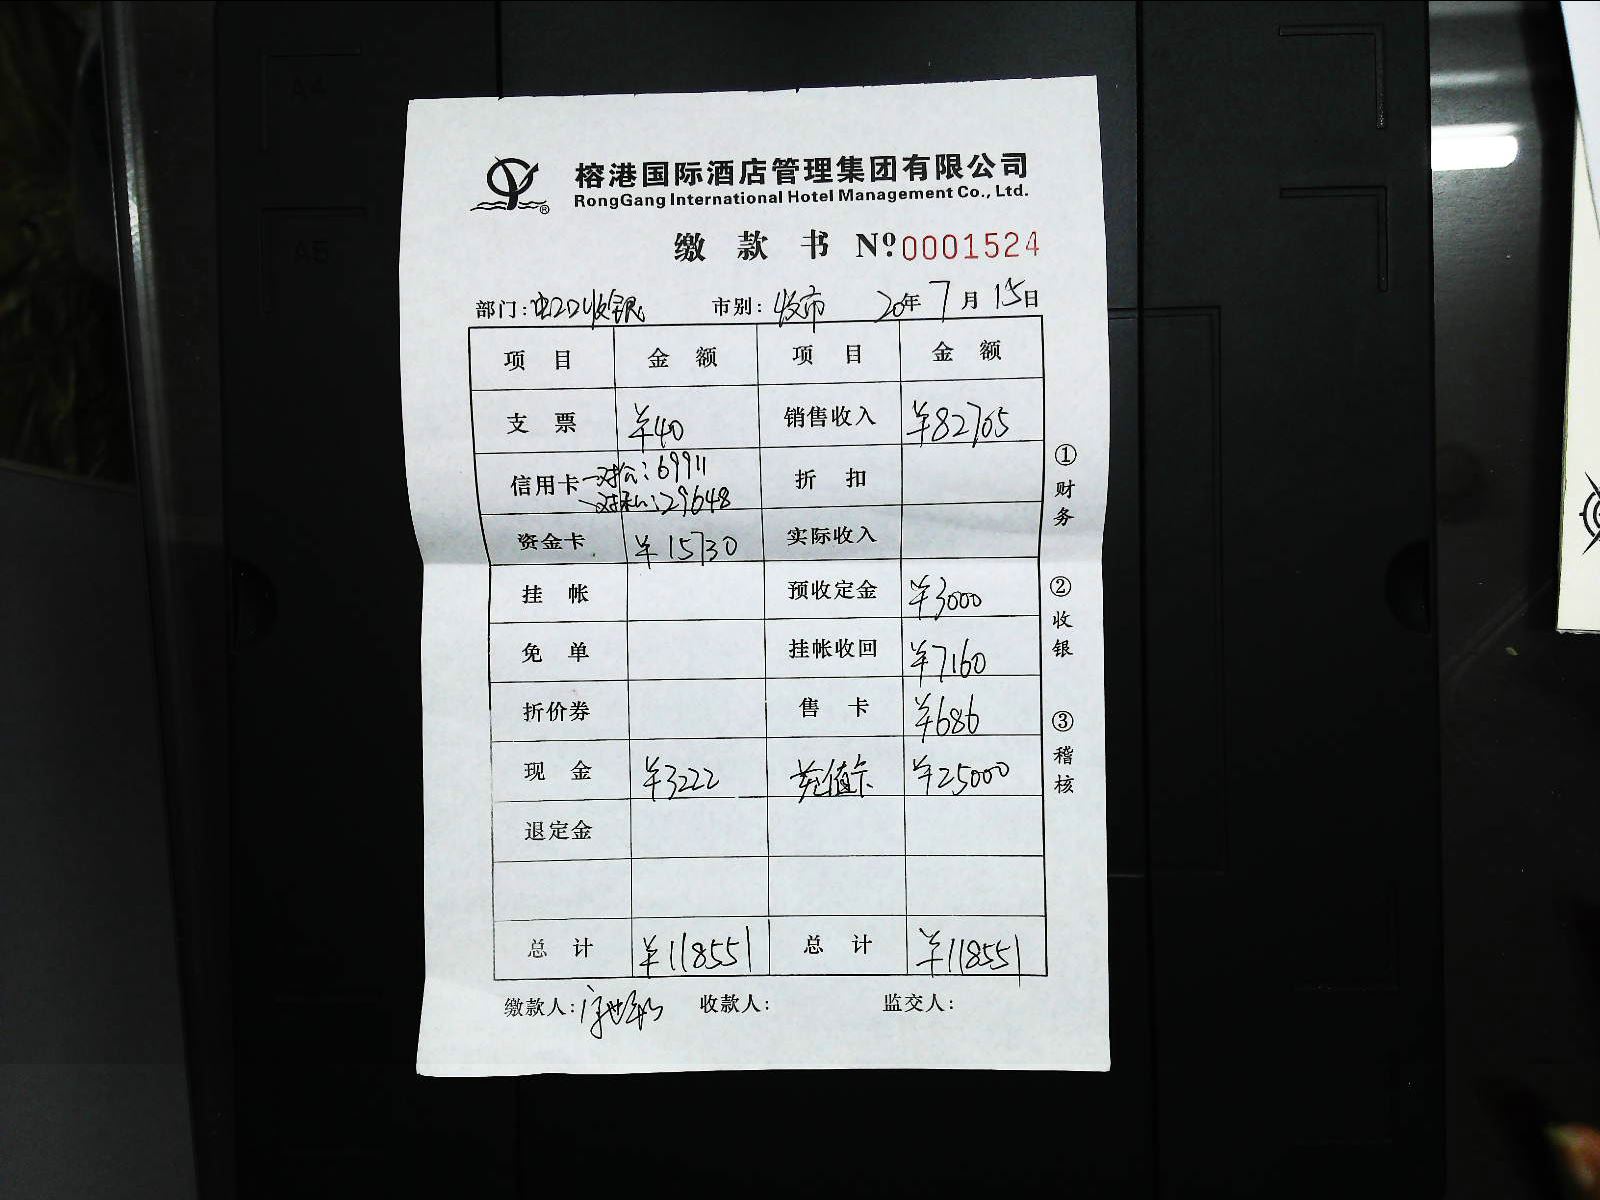 榕港国际酒店管理集团有限公司
RongGang International Hotel Management Co., Ltd.
缴 款 书 Nº 0001524
部门: 收银 市别: 收市 20年 7月 15日
项 目 金 额 项 目 金 额
支 票 ¥40 销售收入 ¥82705
信用卡 对公: 69911 折 扣
对私: 29648
资金卡 ¥15730 实际收入
挂 帐 预收定金 ¥3000
免 单 挂帐收回 ¥7160
折价券 售 卡 ¥686
现 金 ¥3222 充值卡 ¥25000
退定金
总 计 ¥118551 总 计 ¥118551
缴款人: 收款人: 监交人:
①财务
②收银
③稽核
A4
A5